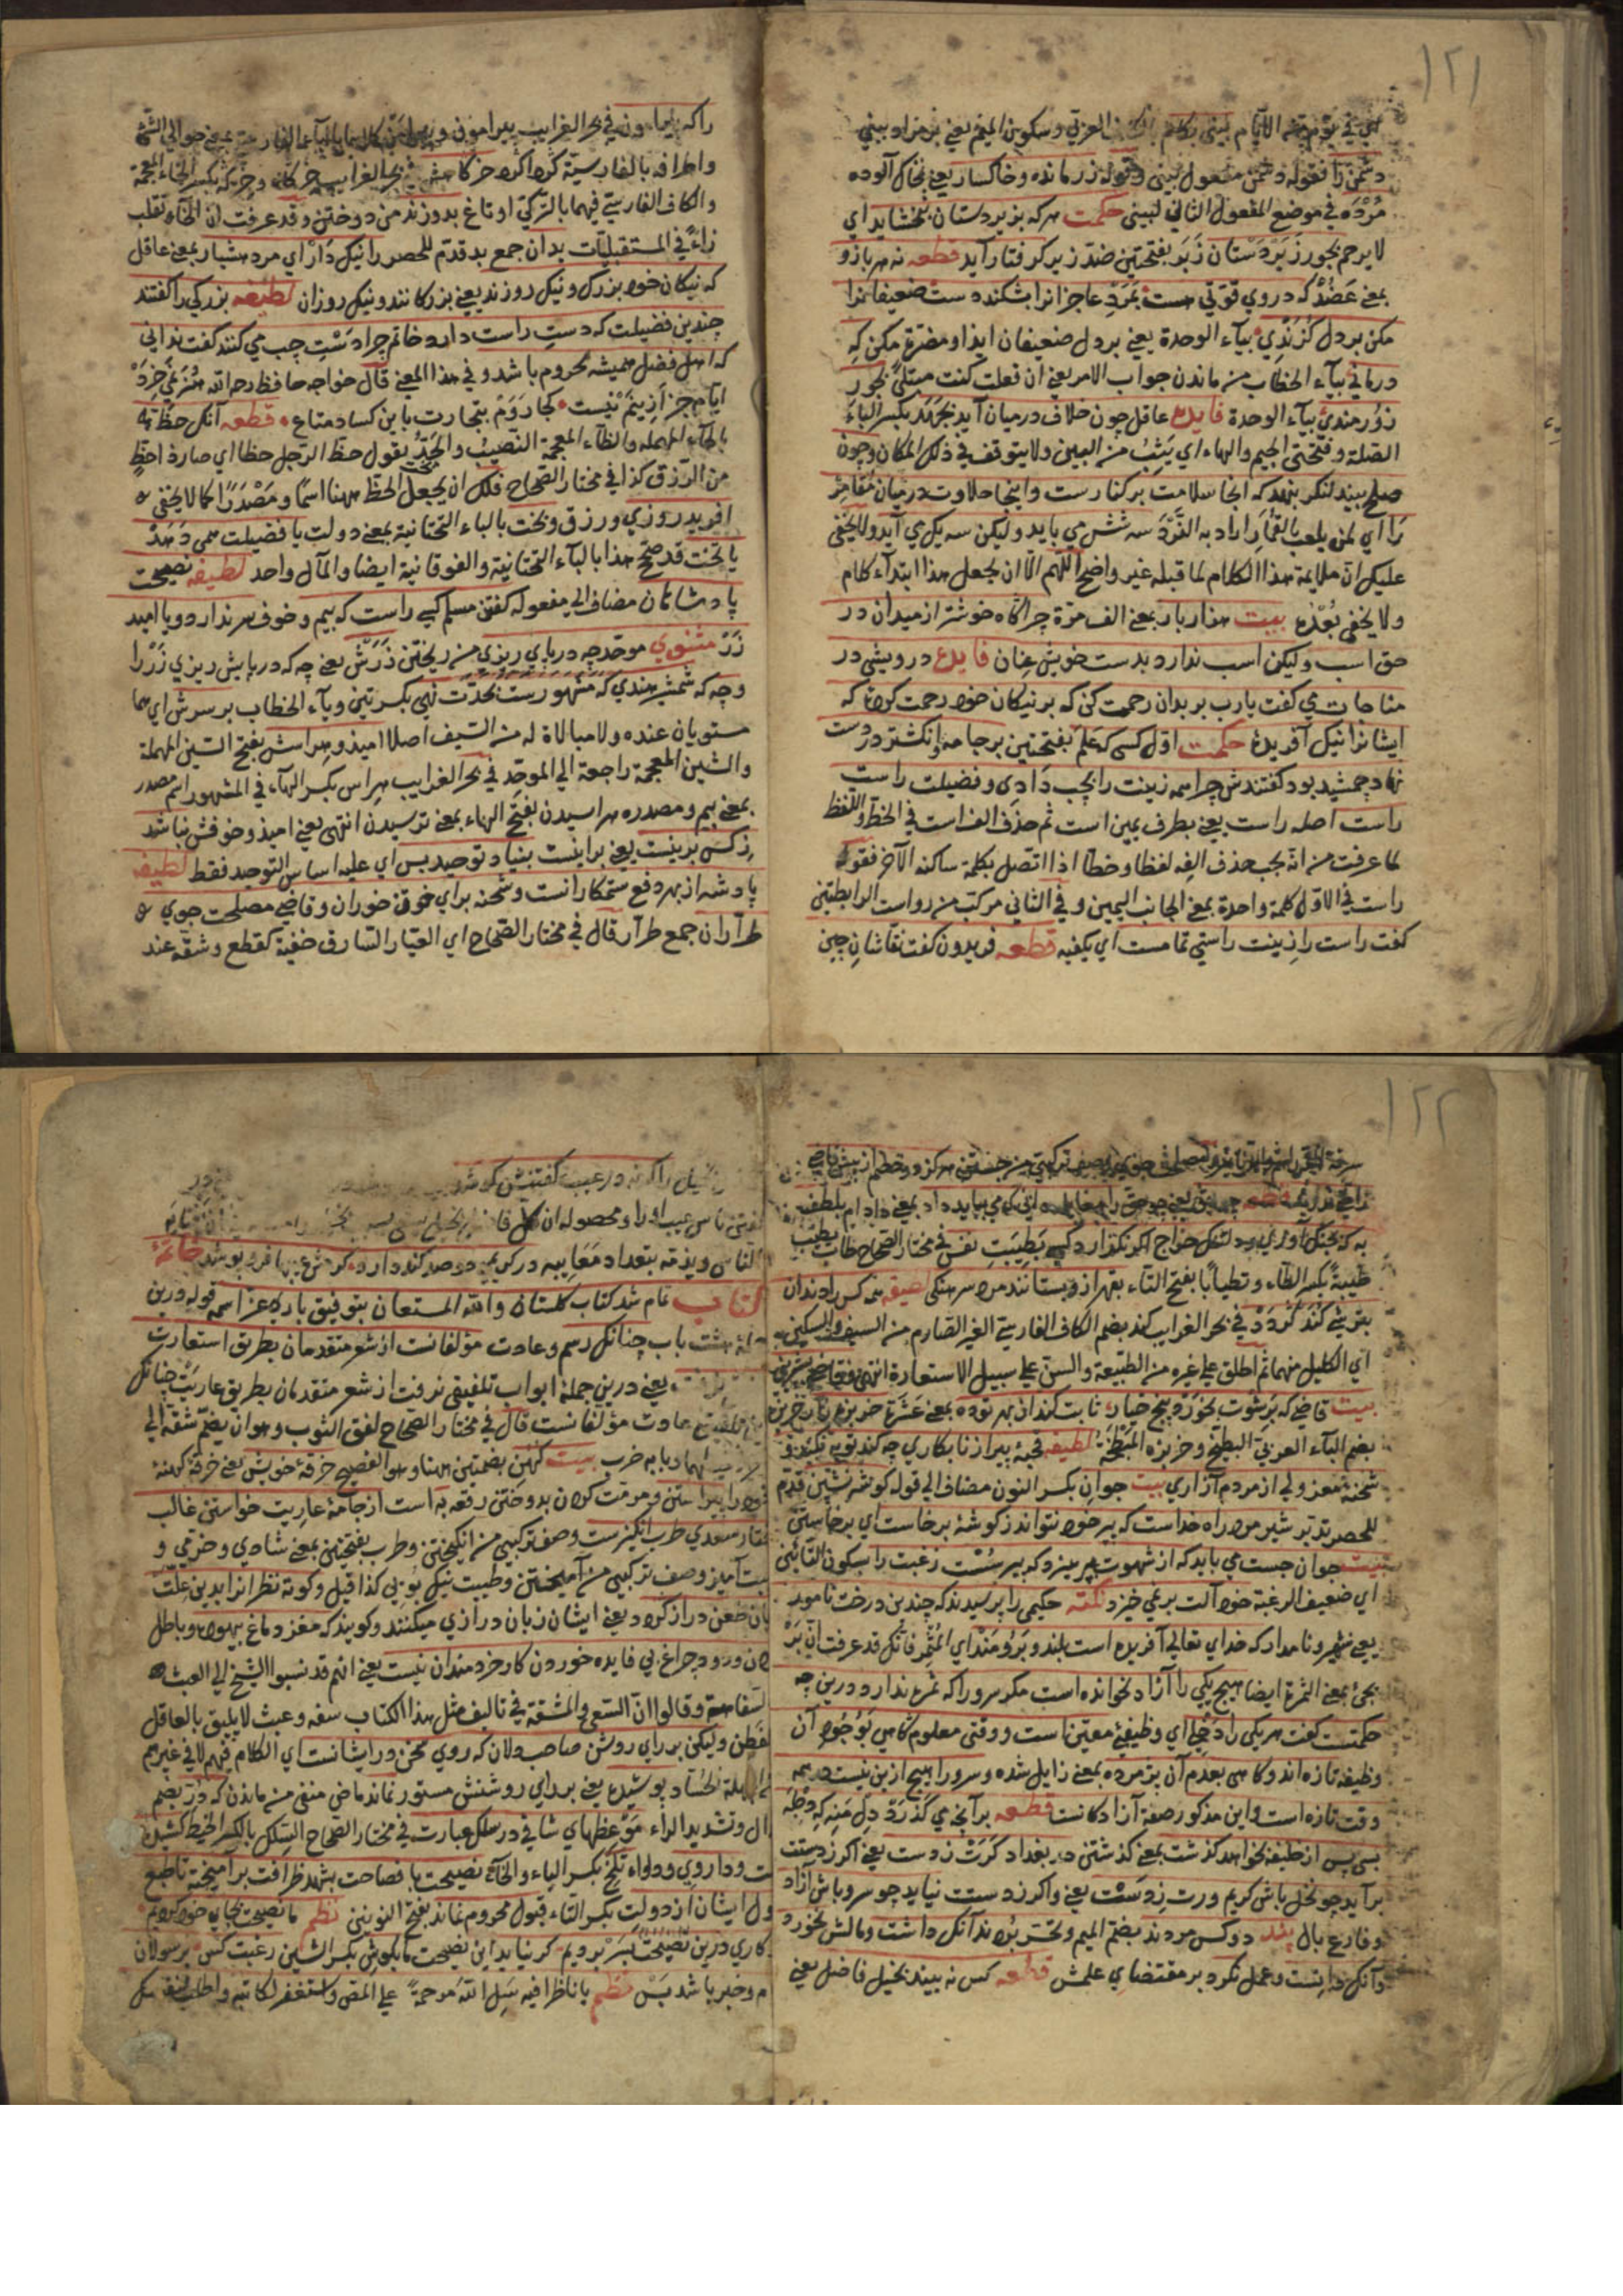 ١٢١
دشمن را فقوله دشمن مفعول بيني وقوله زرمانده وخاكسار يعني بخاك آلوده
مُرْدَه في موضع المفعول الثاني لبيني حكمت هر كه بزيردستان نبخشايد اي
لا يرحم بجور زَبَرْدَسْتان زَبَر بفتحتين ضدّ زير كرفتار آيد قطعه نه هر بازو
بمعني عَضُدْ كه در وي قوّتي هست بمَرْدِى عاجزانرا بشكند دست ضعيفانرا
مكن بر دل كَزَنْدِي بياء الوحدة يعني بر دل ضعيفان ايذا ومضرّة مكن كِه
درماني بياء الخطاب من ماندن جواب الامر يعني ان فعلت كنت مبتلىً بجور
زُورمندى بياء الوحدة فايده عاقل چون خلاف درميان آيد بجَهَد بكسر الباء
الصّلة وفتحتي الجيم والهاء اي يَثِبُ من البين ولا يتوقف في ذلك المكان وچون
صلح بيند لنكر بنهد كه آنجا سلامت بر كنارست واينجا حلاوت درميان مُقامِر
رَا اي لمن يلعب بالقُمار اراد به النَّرْدَ سه شش مي بايد وليكن سه يك مي آيد ولا يخفى
عليك انّ ملايمة هذا الكلام لما قبله غير واضح اللّهم الّا ان يجعل هذا ابتداء كلام
ولا يخفى بُعْدُه بيت هزار بار بمعني الف مرّة چراكاه خوشتر از ميدان در
حق اسب وليكن اسب ندارد بدست خويش عِنان فايده درويشى در
مناجات مي كفت يارب بر بدان رحمت كن كه بر نيكان خود رحمت كردۀ كه
ايشانرا نيك آفريدۀ حكمت اوّل كسى كه عَلَم بفتحتين بر جامه وانكشتر در دست
نهاد جمشيد بود كفتندش چرا همه زينت را بچپ دَادِى وفضيلت راست
راست اصله راست يعني بطرف يمين است ثم حذف الف است في الخط واللّفظ
لما عرفت من انّه يجب حذف الفه لفظا وخطا اذا اتّصل بكلمة ساكنه الآخر فقوله
راست في الاوّل كلمة واحدة بمعني الجانب اليمين وفي الثاني مركّب من رواست الرابطتين
كفت راست را زينت راستي تمامست اي يكفيه قطعه فريدون كفت نقّاشانِ چين
را كه پيرامون في بحر الغرايب پيرامون
واطرافه بالفارسيّة
والكاف الفارسيّة فيهما بالتّركيّ اوتاغ بدوزند من دوختن وقد عرفت ان الخاء تقلب
زاءً في المستقبليّات بدان جمع بد قدّم للحصر را نيك دَارْ اي مرد هشيار بمعني عاقل
كه نيكان خود بزرك ونيك روزند يعني بزركانند ونيك روزان لطيفه بزركى را كفتند
چندين فضيلت كه دستِ راست دارد خاتم چرا دَسْتِ چپ مي كنند كفت نداني
كه اهل فضل هميشه محروم باشد وفي هذا المعني قال خواجه حافظ رحمه الله هُنَر نمي خِرَدْ
ايّام جز ازينَمْ نيست كجا رَوَمْ بتجارت باين كساد متاع قطعه آنك حَظّ بالحاء المهمله
والظّاء المعجمة النّصيبُ والجَدُّ يقول حظّ الرّجل حظا اي صار ذا حظٍّ
من الرّزق كذا في مختار الصّحاح فلك ان يجعل الحظّ ههنا اسمًا ومَصْدَرًا كما لا يخفى
آفريد روزي ورزق وبخت بالباء التّحتانيّة بمعني دولت يا فضيلت همى دَهَدْ
يا تخت قد صحّ هذا بالباء التّحتانيّة والفوقانيّة ايضا والمآل واحد لطيفه نصيحت
پادشاهان مضاف الى مفعوله كفتن مسلّم كسى راست كه بيم وخوف سر ندارد ويا اميد
زَرْ مثنوي موحّد چه در پاي ريزي من ريختن زَرَشْ يعني چه كه در پايش ريزي زَرْ را
وچه كه شمشير هندي كه مشهورست بحدّت نهي بكسرتين وياء الخطاب بر سرش اي هما
مستويان عنده ولا مبالاة له من السّيف اصلا اميد وهراسش بفتح السّين المهملة
والشّين المعجمة راجعة الي الموحّد في بحر الغرايب هراس بكسر الهاء في المشهور اسم مصدر
بمعني بيم ومصدره هراسيدن بفتح الهاء بمعني ترسيدن انتهى يعني اميد وخوفش نباشد
زِ كَس برينست يعني براينست بنياد توحيد بس اي عليه اساس التوحيد فقط لطيفه
پادشه از بهر دفع ستمكارانست وشحنه براي خون خوران وقاضي مصلحت جوي
طرّاران جمع طرّار قال في مختار الصّحاح اي العيّار السّارق خفية كقطع وشقّه عند
١٢٢
طِيبةً بكسر الطّاء وتطيابًا بفتح التّاء بقهر ازو بستانند مرد سرهنكى لطيفه همه كس را دندان
بترشي كُند كَرَدَدْ في بحر الغرايب كند بضم الكاف الفارسيّة الغير الصّارم من السيف والسكين
اي الكليل منهما ثم اطلق على غيره من الطّبيعة والسنّ على سبيل الاستعارة انتهى وقاضي بشيريني
بيت قاضي كه برشوت بخورد پنج خيار ثابت كند از بهر تو ده بمعني عَشَرَة خربزه زار
بضم الباء العربيّ البطيخ وخربزه المَبْطَخَة لطيفه قحبۀ پير از نابكاري چه كند توبه نكند و
شحنۀ معزولي از مردم آزاري بيت جوانِ بكسر النون مضاف الى قوله كوشه نشين قدّم
للحصر تدبّر شير مرد راه خداست كه پير خود نتواند ز كوشۀ برخاست اي برخاستن
بيت جوان جست مي بايد كه از شهوت بپرهيزد كه پير سُسْت رغبت را بسكون التّائين
اي ضعيف الرّغبة خود آلت بر نمي خيزد نكته حكيمى را پرسيدند كه چندين درخت نامور
يعني شهير ونامدار كه خداي تعالى آفريده است بلند وبَرُومَنْد اي المُثْمِر فانّك قد عرفت انّ بَرْ
يجئ بمعني الثمرة ايضا هيچ يكى را آزاد نخوانده است مكر سرو را كه ثمره ندارد درين چه
حكمتست كفت هر يكى را دَخْلى اي وظيفۀ معيّن است ووقتى معلوم كاهى بَوُجُودِ آن
وظيفه تازه اند وكاهى بعدم آن پژمرده بمعني زايل شده وسرو را هيچ ازين نيست وهمه
وقت تازه است واين مذكور صفة آزادكانست قطعه بر آنچه مي كَذَرَدْ دِل مَنِه كِه دِجْلَه
بسى پس از خليفه بخواهد كذشت بمعني كذشتن در بغداد كَرَت ز دست يعني اكر ز دستت
برآيد چو نخل باش كريم ورت زِ دَسْت يعني واكر ز دستت نيايد چو سرو باش آزاد
وفارغ بال پند دو كس مردند بضم الميم وتحسّر بُردند آنك داشت ومالش نخورد
وآنك دانست وعمل نكرد بر مقتضاي علمش قطعه كس نه بيند بخيل فاضل يعني
النّاس ويذمّه بتعداد مَعَايبه ور كريمى دو صد كنه دارد كرمش عيبها فرو پوشد خاتمۀ
كتاب تمام شد كتاب كلستان والله المستعان بتوفيق بارى عزّ اسمه قوله درين
باب چنانك رسم وعادت مؤلّفانست از شعر متقدمان بطريق استعارت
يعني درين جملۀ ابواب تلفيقي نرفت از شعر متقدمان بطريق عاريت چنانك
عادت مؤلّفانست قال في مختار الصّحاح لفق الثوب وهو ان يضمّ شقّة الى
بابه ضرب بيت كهن بضمتين ههنا وهو الفصيح خرقۀ خويش يعني خرقۀ كهنۀ
خود را پيراستن ومرمّت كردن بدوختن رقعه به است از جامۀ عاريت خواستن غالب
كفتار سعدي طرب انكيزست وصف تركيبي من انكيختن وطرب بفتحتين بمعني شادي وخرّمي و
طيبت آميز وصف تركيبي من آميختن وطيبت نيك بُويى كذا قيل وكوته نظرانرا بدين علّت
زبان طعن دراز كردد يعني ايشان زبان درازي ميكنند وكويند كه مغز دماغ بيهوده وباطل
بردن ودود چراغ بي فايده خوردن كار خردمندان نيست يعني انّهم قد نسبوا الشّيخ الى العبث
السّفاهة وقالوا انّ السّعي والمشقّة في تاليف مثل هذا الكتاب سفه وعبث لا يليق بالعاقل
الفطن وليكن بر راي روشن صاحب دلان كه روي سخن در ايشانست اي الكلام فيهم لا في غيرهم
پوشيده يعني بر راي روشنش مستور نماند ماضي منفي من ماندن كه دُرّ بضم
الدال وتشديد الراء مَوْعِظهاي شافي در سلك عبارت في مختار الصّحاح السّلك بالكسر الخيط كشيده
است وداروي ودواء تلخ بكسر الياء والخاء نصيحت با فصاحت بشهد ظرافت برآميخته تا طبع
ملول ايشان از دولت بكسر التّاء قبول محروم نماند بفتح النونين نظم ما نصيحت بجاي خود كرديم
روزكاري درين نصيحت بسَرْ برديم كر نيايد اين نصيحت ما بكوش بكسر الشين رغبت كس بر رسولان
پيام وخبر باشد بَسْ نظم يا ناظرا فيه سَلِ الله مَرحمةً على المصنّف واستغفر لكاتبه واطلب لنفسك